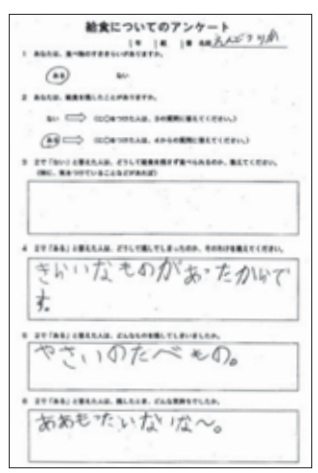 給食についてのアンケート
1年 1組 1番 名前
1 あなたは、食べ物のすききらいがありますか。
ある ない
2 あなたは、給食を残したことがありますか。
ない ⇨ (に○をつけた人は、3の質問に答えてください。)
ある ⇨ (に○をつけた人は、4からの質問に答えてください。)
3 2で「ない」と答えた人は、どうして給食を残さず食べられるのか、教えてください。
(特に、気をつけていることなどがあれば)
4 2で「ある」と答えた人は、どうして残してしまったのか、そのわけを教えてください。
きらいなものがあったからで
す。
5 2で「ある」と答えた人は、どんなものを残してしまいましたか。
やさいのたべもの。
6 2で「ある」と答えた人は、残したとき、どんな気持ちでしたか。
ああもったいないな～。